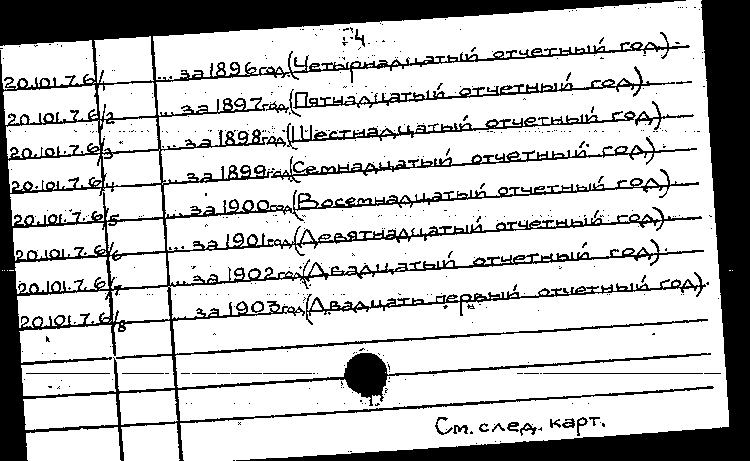 4
20.101.7.6/1 ... за 1896 год (Четырнадцатый отчетный год).
20.101.7.6/2 ... за 1897 год (Пятнадцатый отчетный год).
20.101.7.6/3 ... за 1898 год (Шестнадцатый отчетный год).
20.101.7.6/4 ... за 1899 год (Семнадцатый отчетный год).
20.101.7.6/5 ... за 1900 год (Восемнадцатый отчетный год).
20.101.7.6/6 ... за 1901 год (Девятнадцатый отчетный год).
20.101.7.6/7 ... за 1902 год (Двадцатый отчетный год).
20.101.7.6/8 ... за 1903 год (Двадцать первый отчетный год).
См. след. карт.